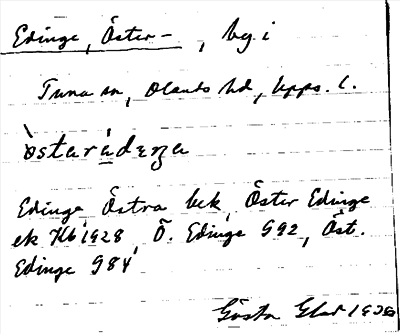 Edinge, Öster-, by i
Tuna sn, Olands hd, Upps. l.
òstarädeŋa
Edinge, Östra bek, Öster Edinge
ek Kb 1928, Ö. Edinge G92, Öst.
Edinge G84
Gösta